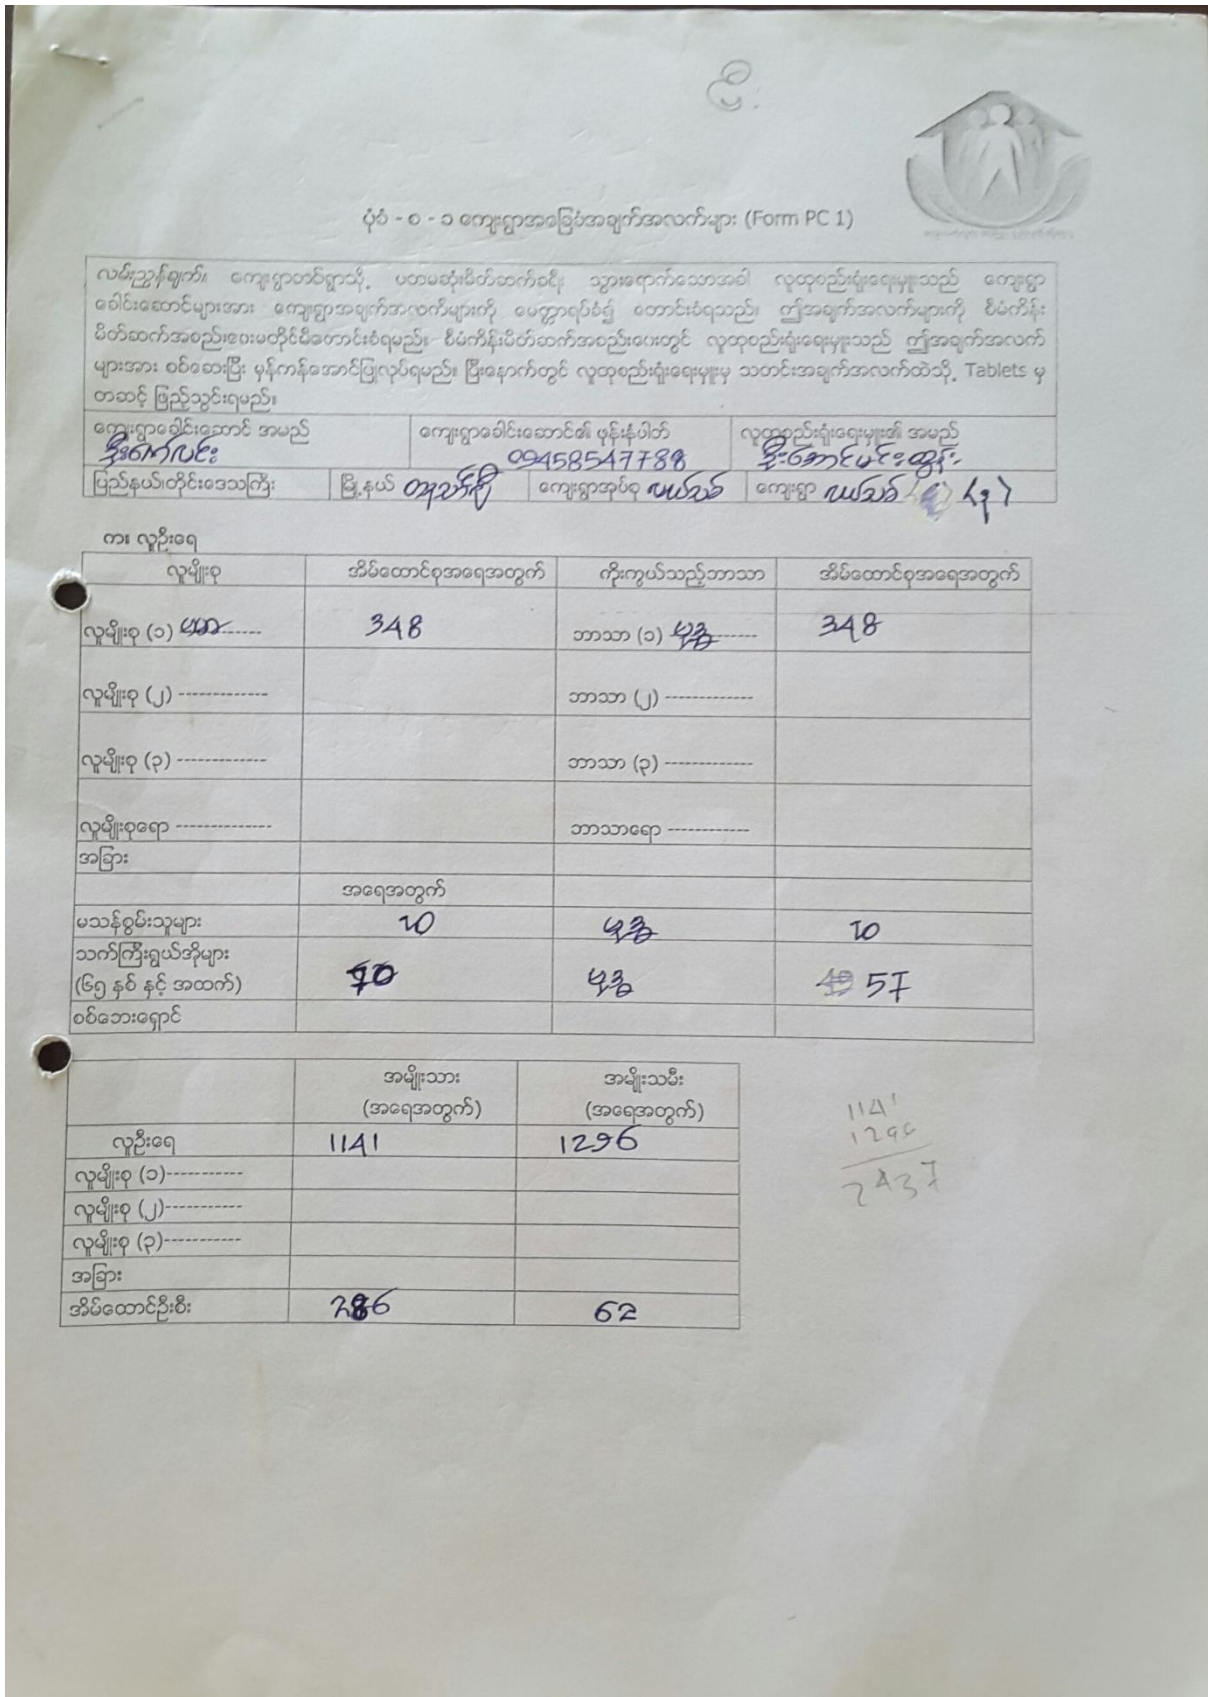 ပုံစံ - စ - ၁ ကျေးရွာအခြေခံအချက်အလက်များ (Form PC 1)
လမ်းညွှန်ချက်။ ကျေးရွာတစ်ရွာသို့ ပတမဆုံးမိတ်ဆက်ခရီး သွားရောက်သောအခါ လူထုစည်းရုံးရေးမှူးသည် ကျေးရွာ
ခေါင်းဆောင်များအား ကျေးရွာအချက်အလက်များကို မေတ္တာရပ်ခံ၍ တောင်းခံရသည်။ ဤအချက်အလက်များကို စီမံကိန်း
မိတ်ဆက်အစည်းဝေးမတိုင်မီတောင်းခံရမည်။ စီမံကိန်းမိတ်ဆက်အစည်းဝေးတွင် လူထုစည်းရုံးရေးမှူးသည် ဤအချက်အလက်
များအား စစ်ဆေးပြီး မှန်ကန်အောင်ပြုလုပ်ရမည်။ ပြီးနောက်တွင် လူထုစည်းရုံးရေးမှူးမှ သတင်းအချက်အလက်ထဲသို့ Tablets မှ
တဆင့် ဖြည့်သွင်းရမည်။
ကျေးရွာခေါင်းဆောင် အမည် ကျေးရွာခေါင်းဆောင်၏ ဖုန်းနံပါတ် လူထုစည်းရုံးရေးမှူး၏ အမည်
ဦးဇော်လင်း 09458547788 ဦးအောင်မင်းထွန်း
ပြည်နယ်၊တိုင်းဒေသကြီး မြို့နယ် တနင်္သာရီ ကျေးရွာအုပ်စု လယ်သစ် ကျေးရွာ လယ်သစ်
က။ လူဦးရေ
လူမျိုးစု အိမ်ထောင်စုအရေအတွက် ကိုးကွယ်သည့်ဘာသာ အိမ်ထောင်စုအရေအတွက်
လူမျိုးစု (၁) ဗမာ ------- 348 ဘာသာ (၁) ဗုဒ္ဓ ------- 348
လူမျိုးစု (၂) ------------- ဘာသာ (၂) -------------
လူမျိုးစု (၃) ------------- ဘာသာ (၃) -------------
လူမျိုးစုရော -------------- ဘာသာရော ------------
အခြား
အရေအတွက်
မသန်စွမ်းသူများ 20 ဗုဒ္ဓ 20
သက်ကြီးရွယ်အိုများ
(၆၅ နှစ် နှင့် အထက်) ဗုဒ္ဓ 57
စစ်ဘေးရှောင်
အမျိုးသား အမျိုးသမီး
(အရေအတွက်) (အရေအတွက်)
လူဦးရေ 1141 1296
လူမျိုးစု (၁)-----------
လူမျိုးစု (၂)-----------
လူမျိုးစု (၃)-----------
အခြား
အိမ်ထောင်ဦးစီး 286 62
1141
1296
2437